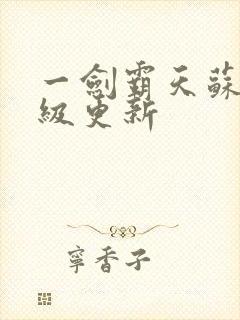 一劍霸天蘇
級更新
寧香子